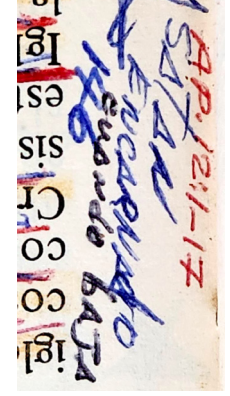 AP. 12:1-17
SATAN
ENCARNADO
cuando BAJA
igl
co
co
Cr
sis
est
Igl